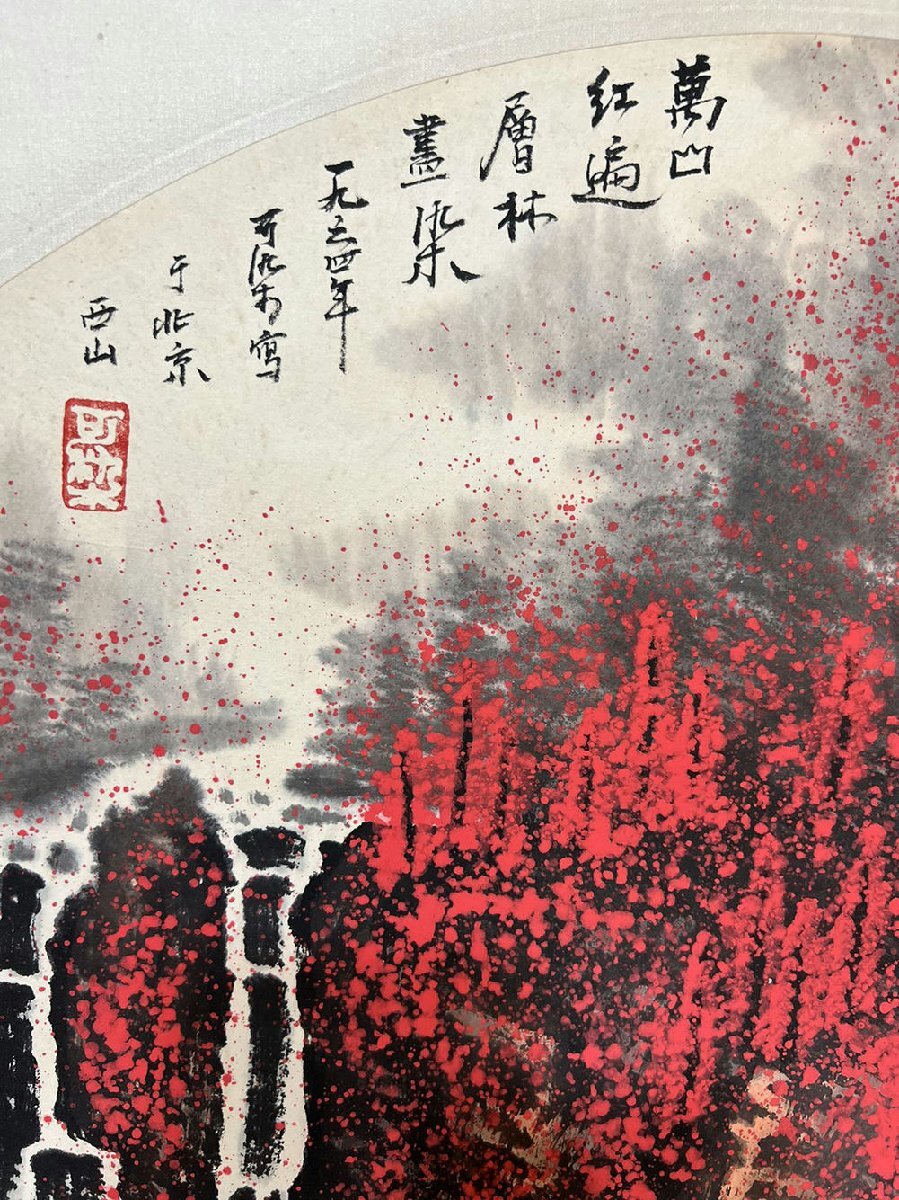 萬山
红遍
層林
盡染
一九五四年
可染写
于北京
西山
可染